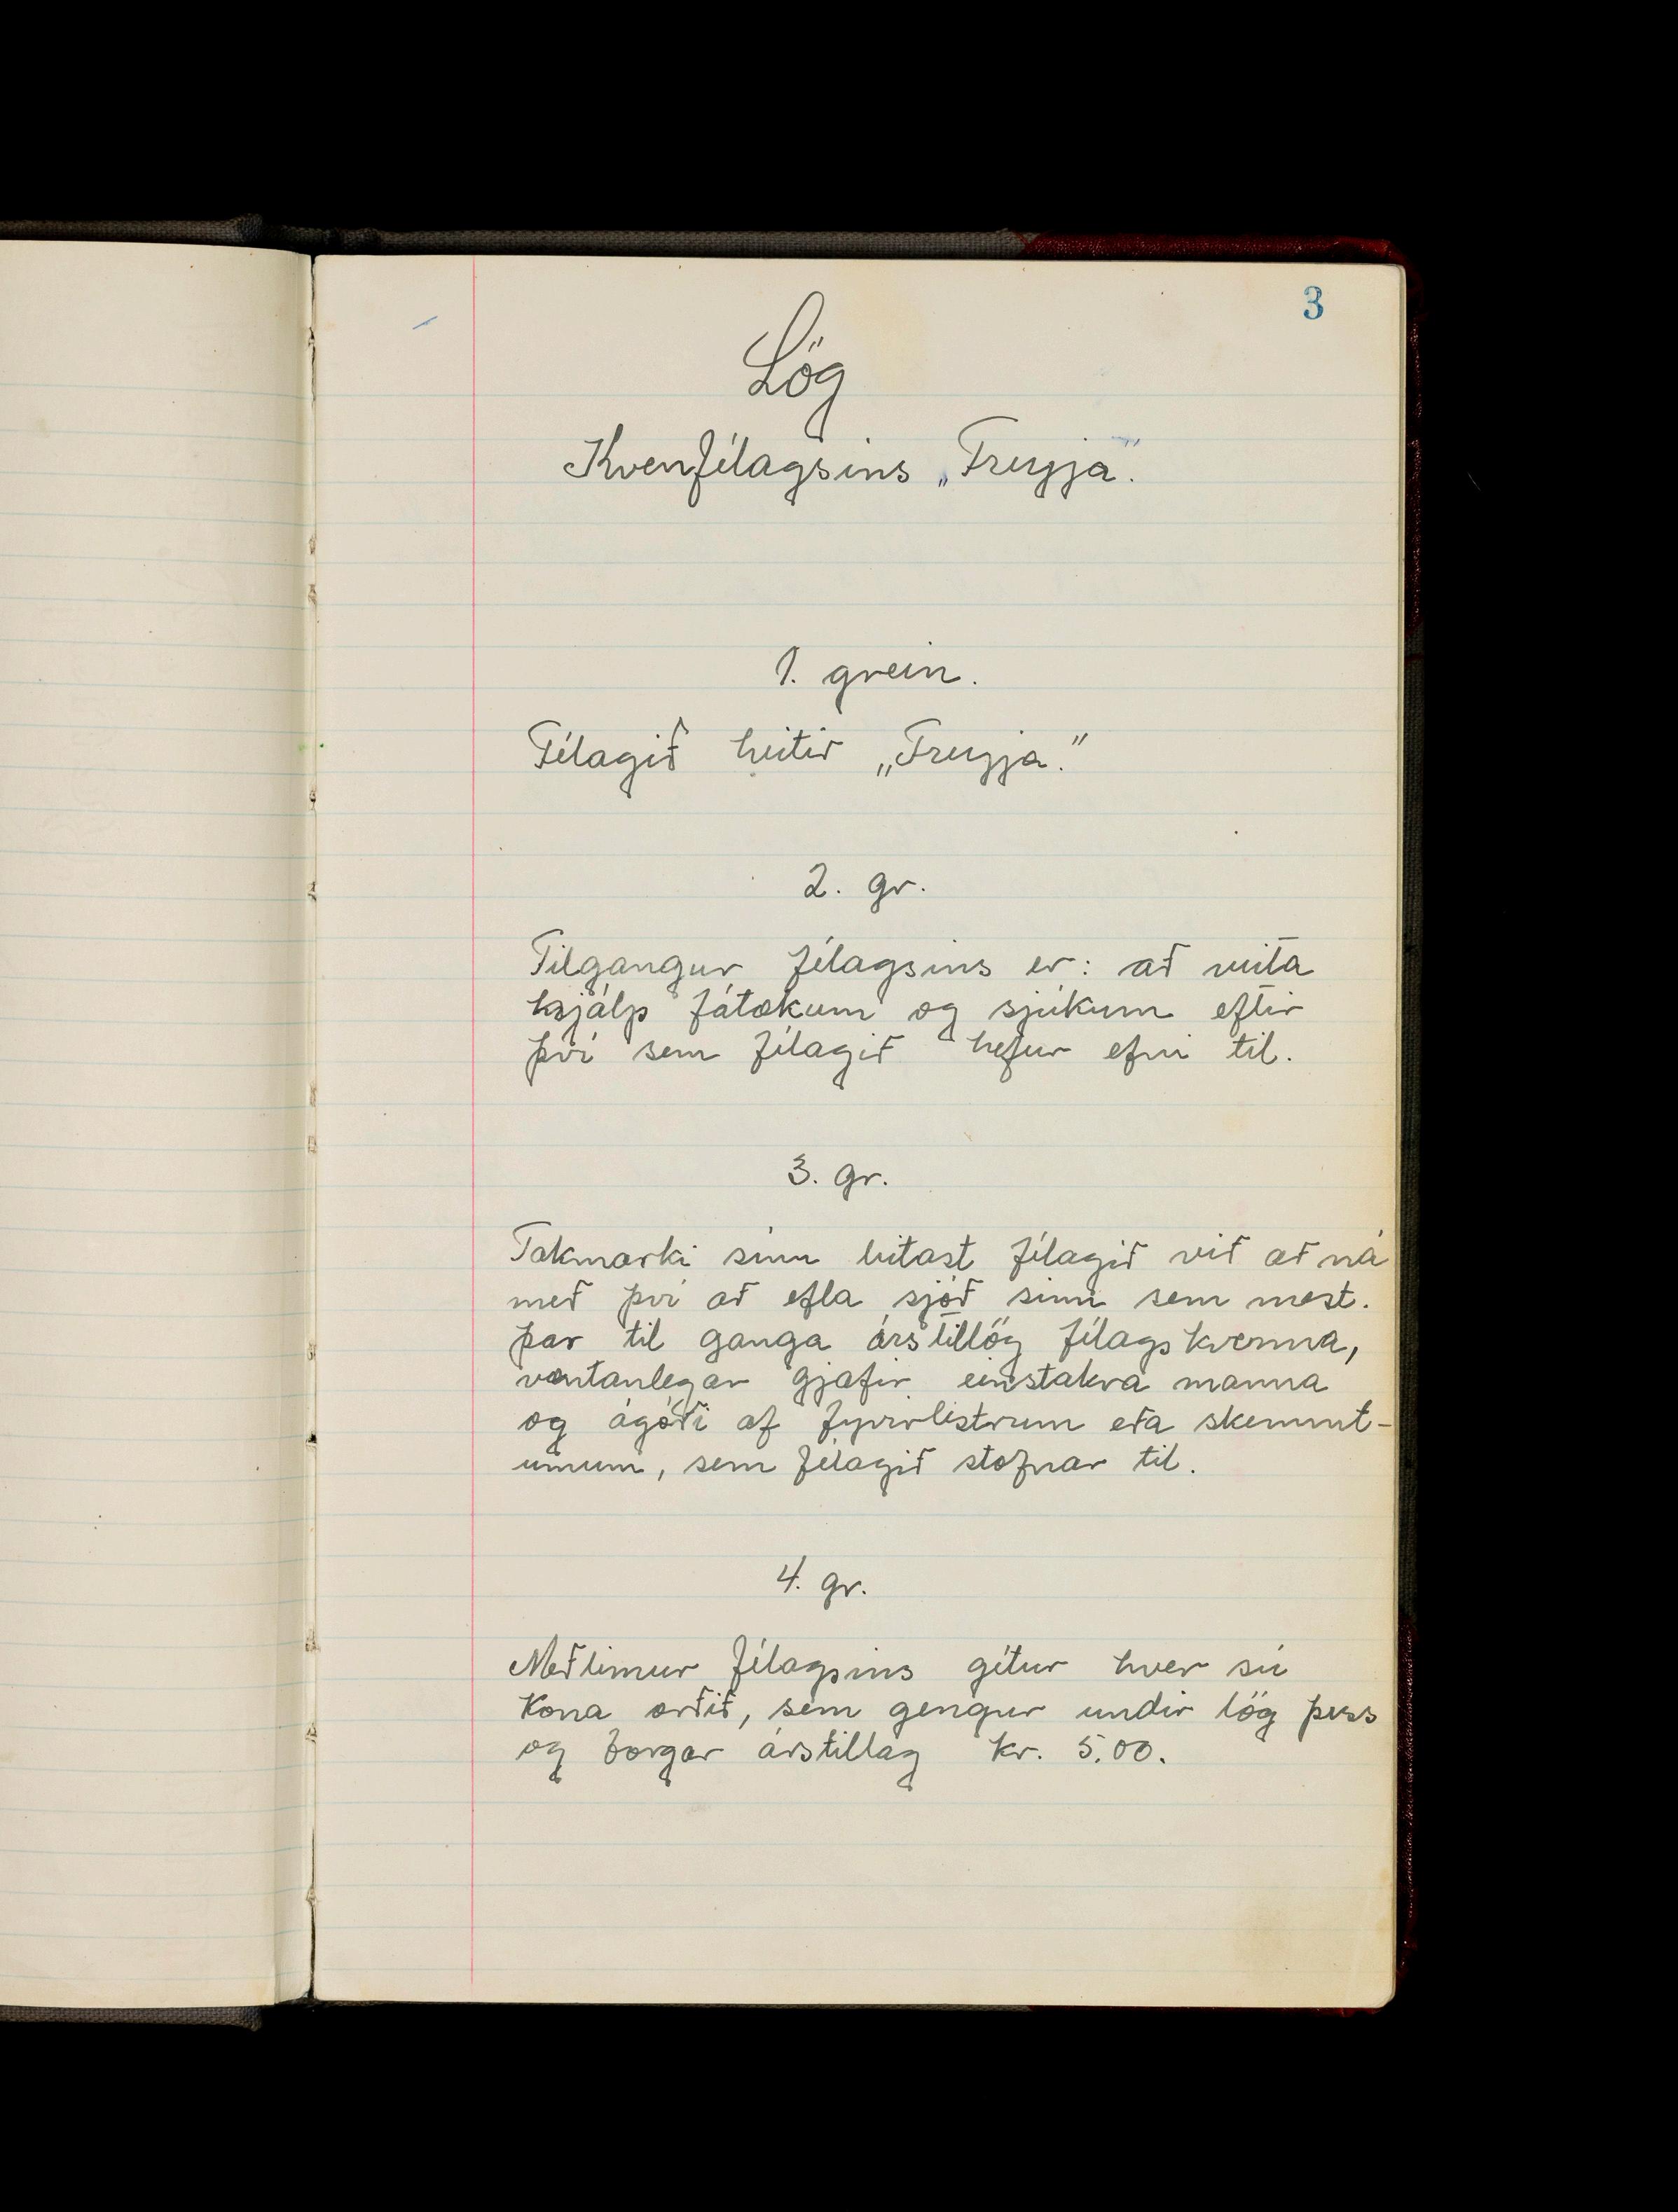 3
Lög
Kvenfélagsins „Freyja".
1. grein.
Félagið heitir „Freyja."
2. gr.
Tilgangur félagsins er: að veita
hjálp fátækum og sjúkum eftir
því sem félagið hefur efni til.
3. gr.
Takmarki sínu leitast félagið við að ná
með því að efla sjóð sinn sem mest.
Þar til ganga árstillög félagskvenna,
væntanlegar gjafir einstakra manna
og ágóði af fyrirlestrum eða skemmt-
unum, sem félagið stofnar til.
4. gr.
Meðlimur félagsins getur hver sú
kona orðið, sem gengur undir lög þess
og borgar árstillag kr. 5.00.